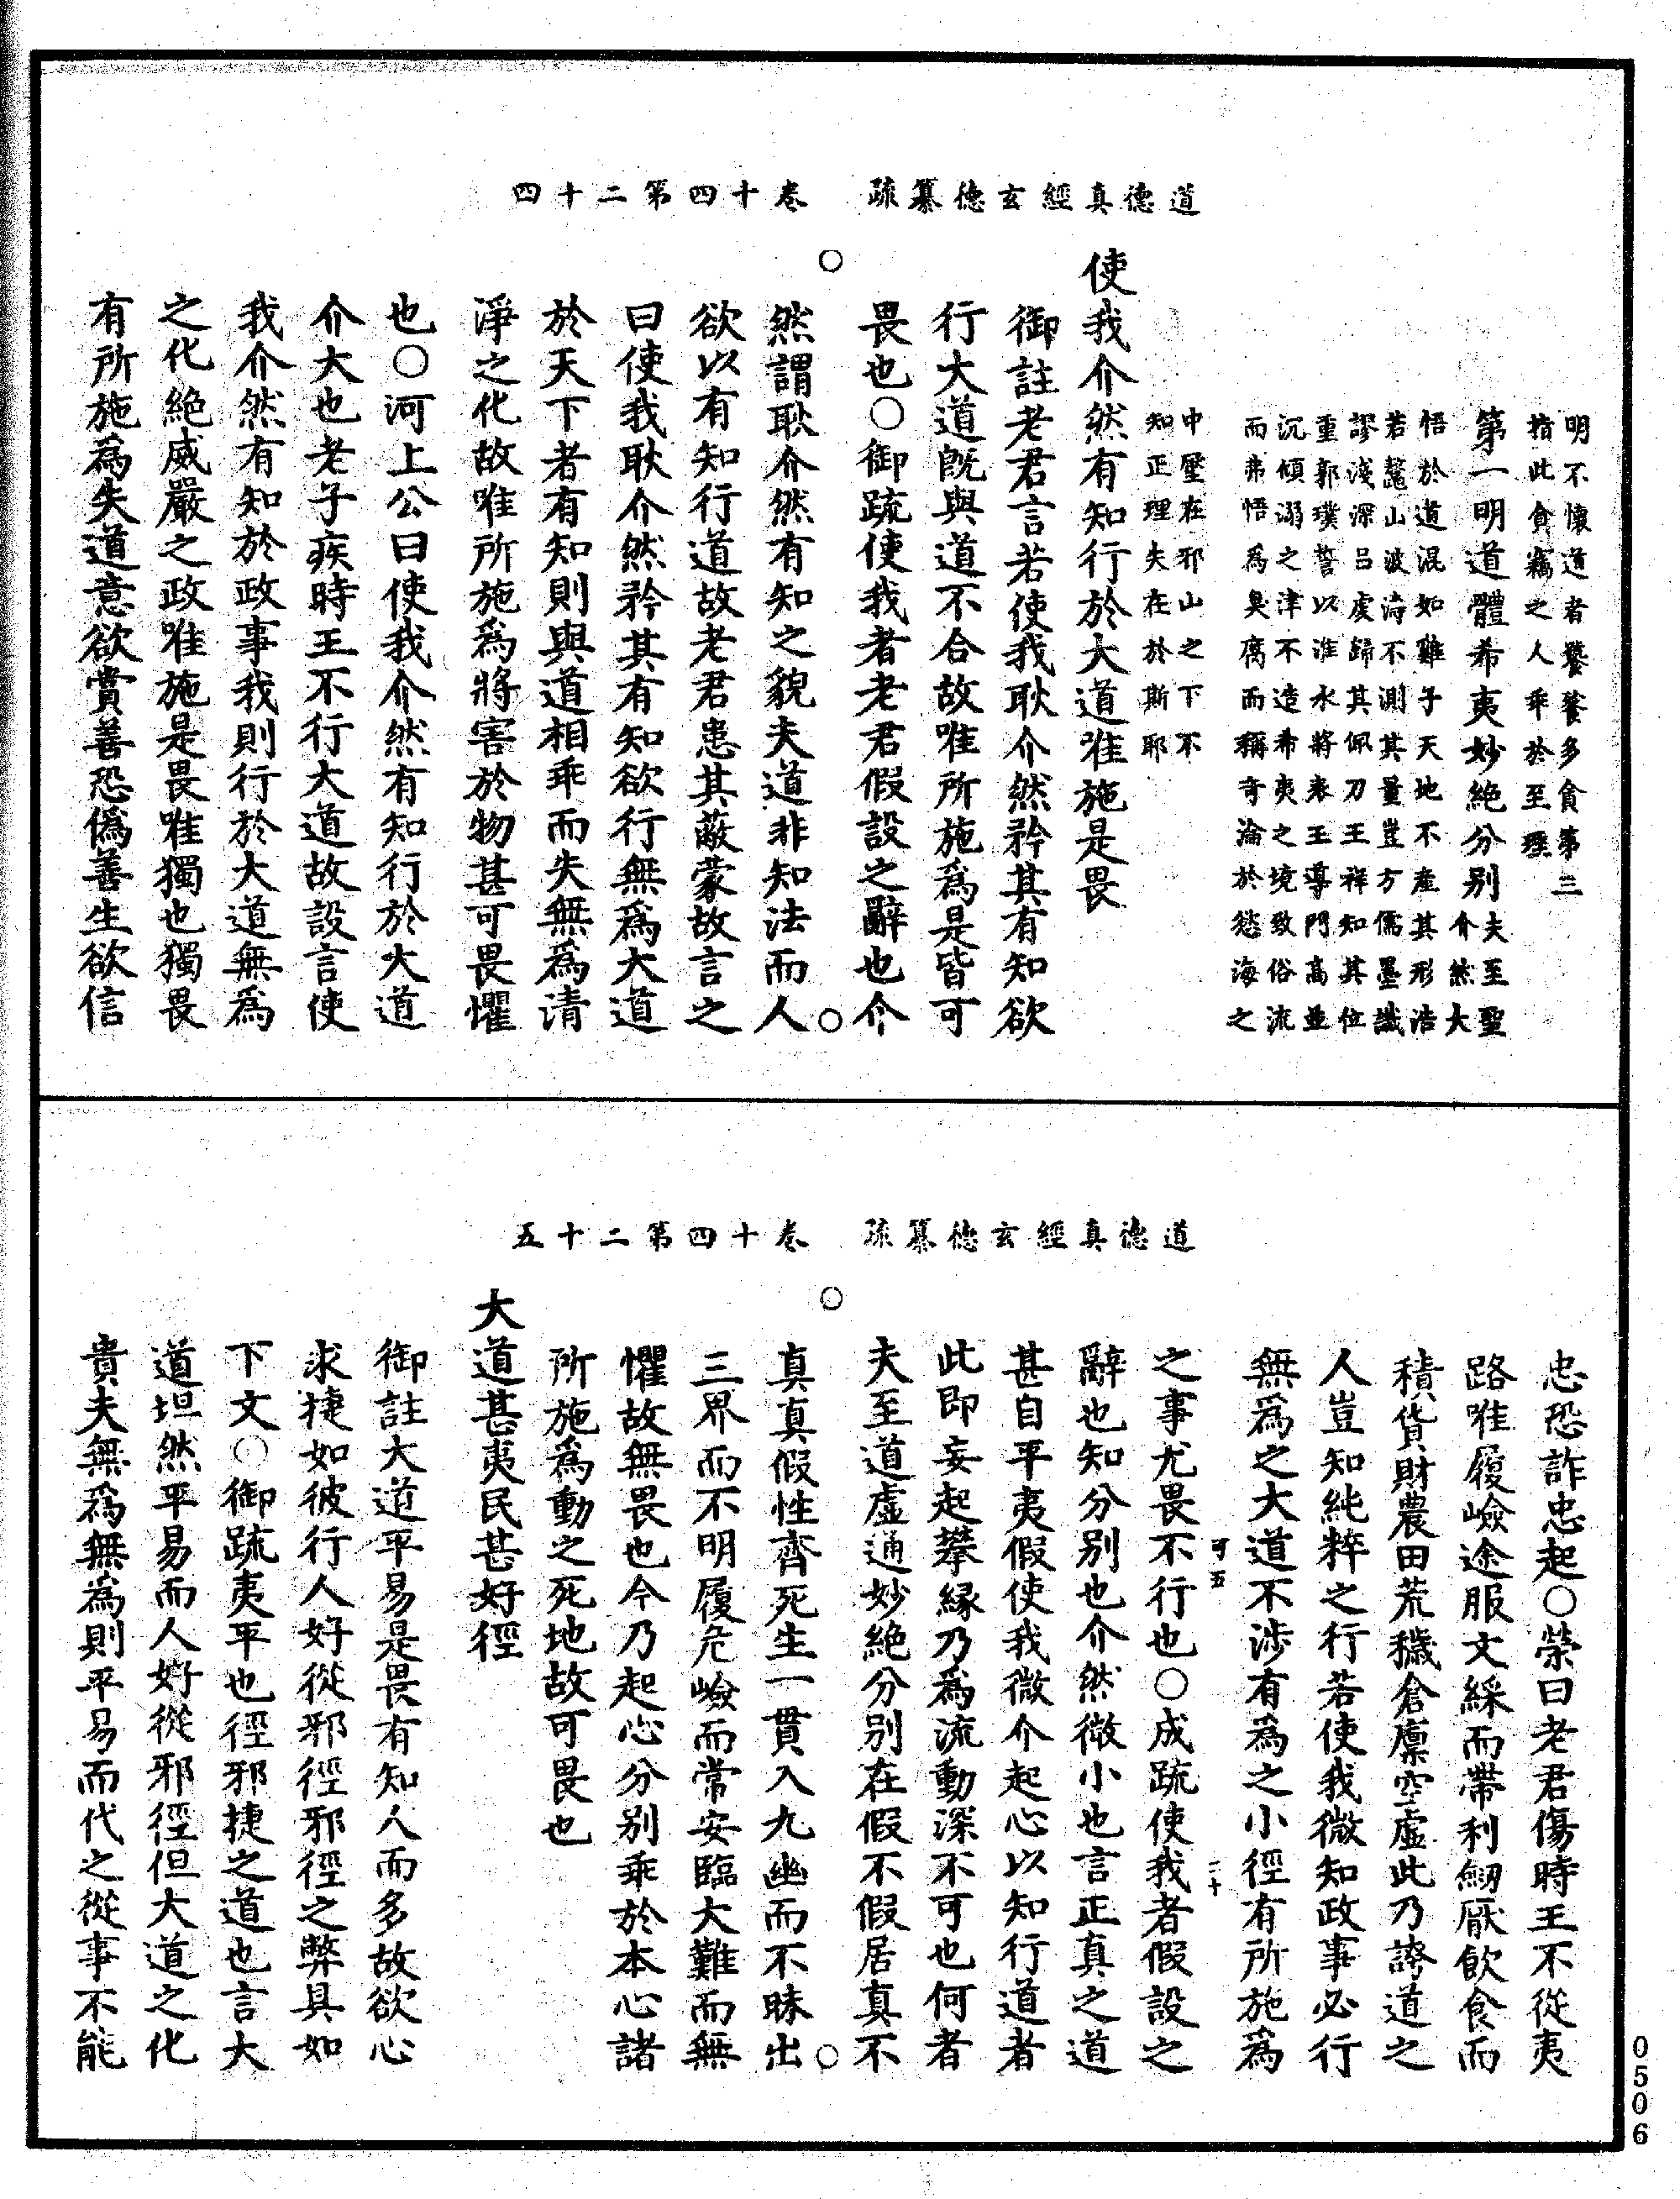 道德真經玄德纂疏　卷十四第二十四
明不懷道者饕餮多貪第三
指此貪竊之人乖於至理
第一明道體希夷妙絕分别
夫至聖
介然大
悟於道混如雞子天地不產其形浩
若鼇山波濤不測其量豈方儒墨識
謬淺深吕虔歸其佩刀王祥知其位
重郭璞誓以淮水將表王導門高並
沉傾溺之津不造希夷之境致俗流
而弗悟為臭腐而稱奇淪於慾海之
中壓在邪山之下不
知正理失在於斯耶
使我介然有知行於大道唯施是畏
御註老君言若使我耿介然矜其有知欲
行大道既與道不合故唯所施為是皆可
畏也○御疏使我者老君假設之辭也介
然謂耿介然有知之貌夫道非知法而人
欲以有知行道故老君患其蔽蒙故言之
曰使我耿介然矜其有知欲行無為大道
於天下者有知則與道相乖而失無為清
淨之化故唯所施為將害於物甚可畏懼
也○河上公曰使我介然有知行於大道
介大也老子疾時王不行大道故設言使
我介然有知於政事我則行於大道無為
之化絕威嚴之政唯施是畏唯獨也獨畏
有所施為失道意欲賞善恐偽善生欲信
道德真經玄德纂疏　卷十四第二十五
忠恐詐忠起○榮曰老君傷時王不從夷
路唯履嶮途服文綵而帶利劒厭飲食而
積貨財農田荒穢倉廩空虛此乃誇道之
人豈知純粹之行若使我微知政事必行
無為之大道不涉有為之小徑有所施為
可五
二十
之事尤畏不行也○成疏使我者假設之
辭也知分别也介然微小也言正真之道
甚自平夷假使我微介起心以知行道者
此即妄起攀緣乃為流動深不可也何者
夫至道虛通妙絕分别在假不假居真不
真真假性齊死生一貫入九幽而不昧出
三界而不明履危嶮而常安臨大難而無
懼故無畏也今乃起心分别乖於本心諸
所施為動之死地故可畏也
大道甚夷民甚好徑
御註大道平易是畏有知人而多故欲心
求捷如彼行人好從邪徑邪徑之弊具如
下文○御疏夷平也徑邪捷之道也言大
道坦然平易而人好從邪徑但大道之化
貴夫無為無為則平易而代之從事不能
0506